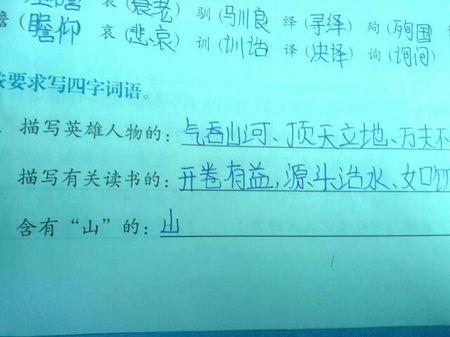 (衰老) 驯(驯良 绎(寻绎) 殉(殉国
瞻仰 哀(悲哀) 训(训诂 译( 询(询问)
按要求写四字词语。
描写英雄人物的:气吞山河、顶天立地、万夫不
描写有关读书的:开卷有益,源头活水、如饥
含有“山”的:山